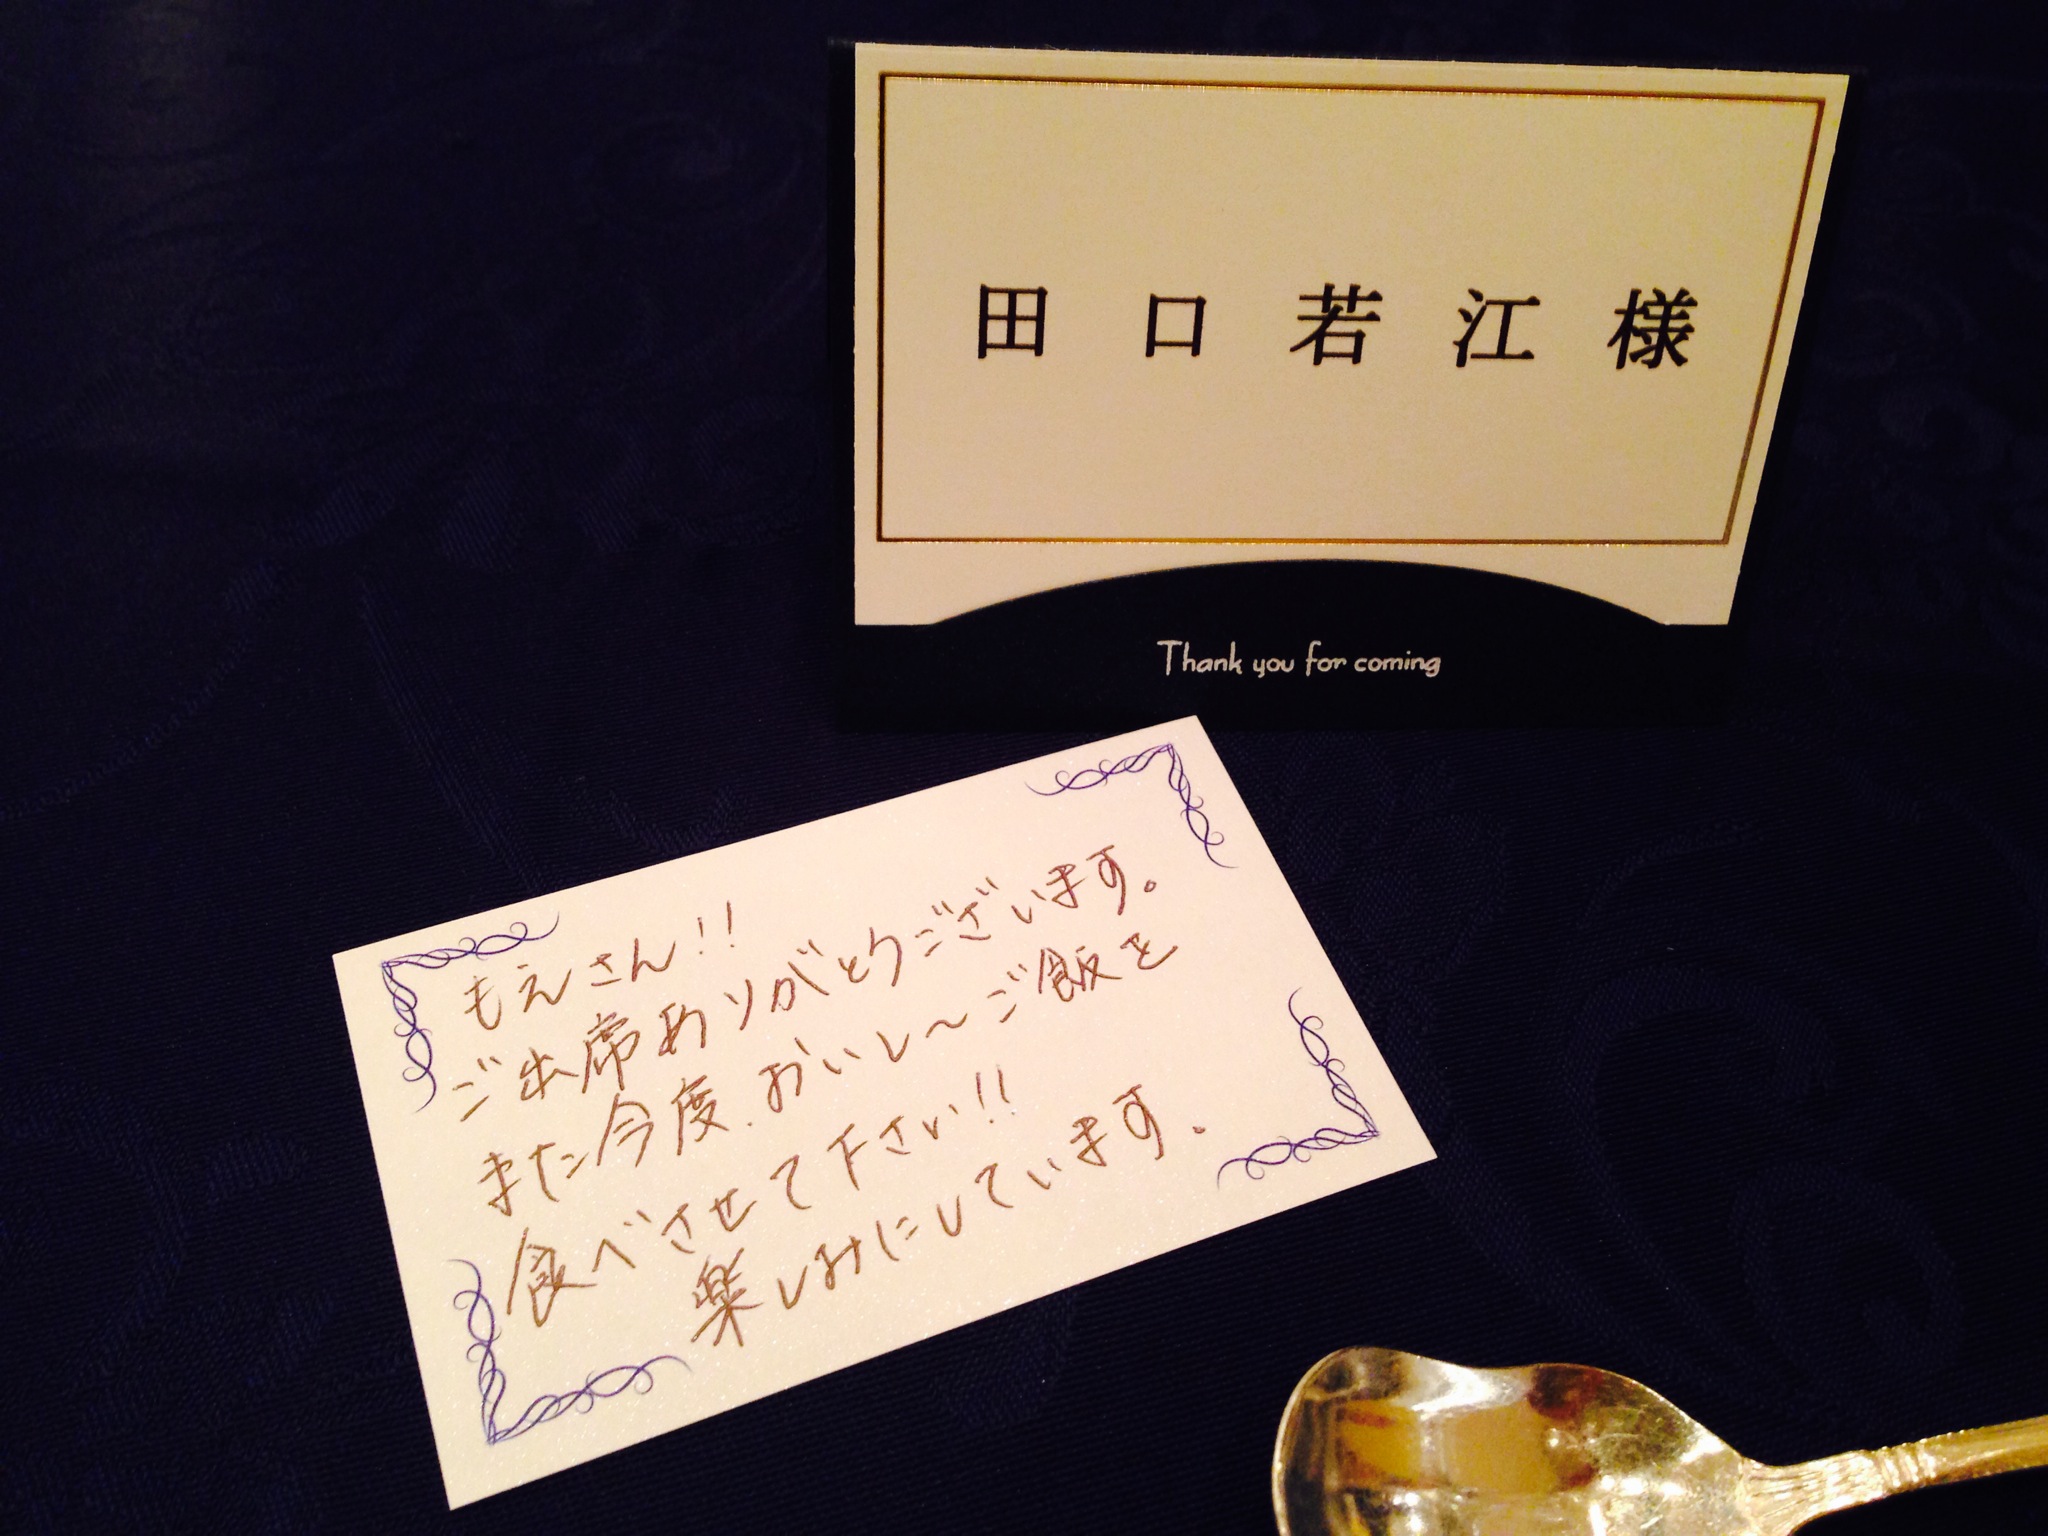 田口若江様
Thank you for coming
もえさん!!
ご出席ありがとうございます。
また今度、おいし〜ご飯を
食べさせて下さい!!
楽しみにしています。